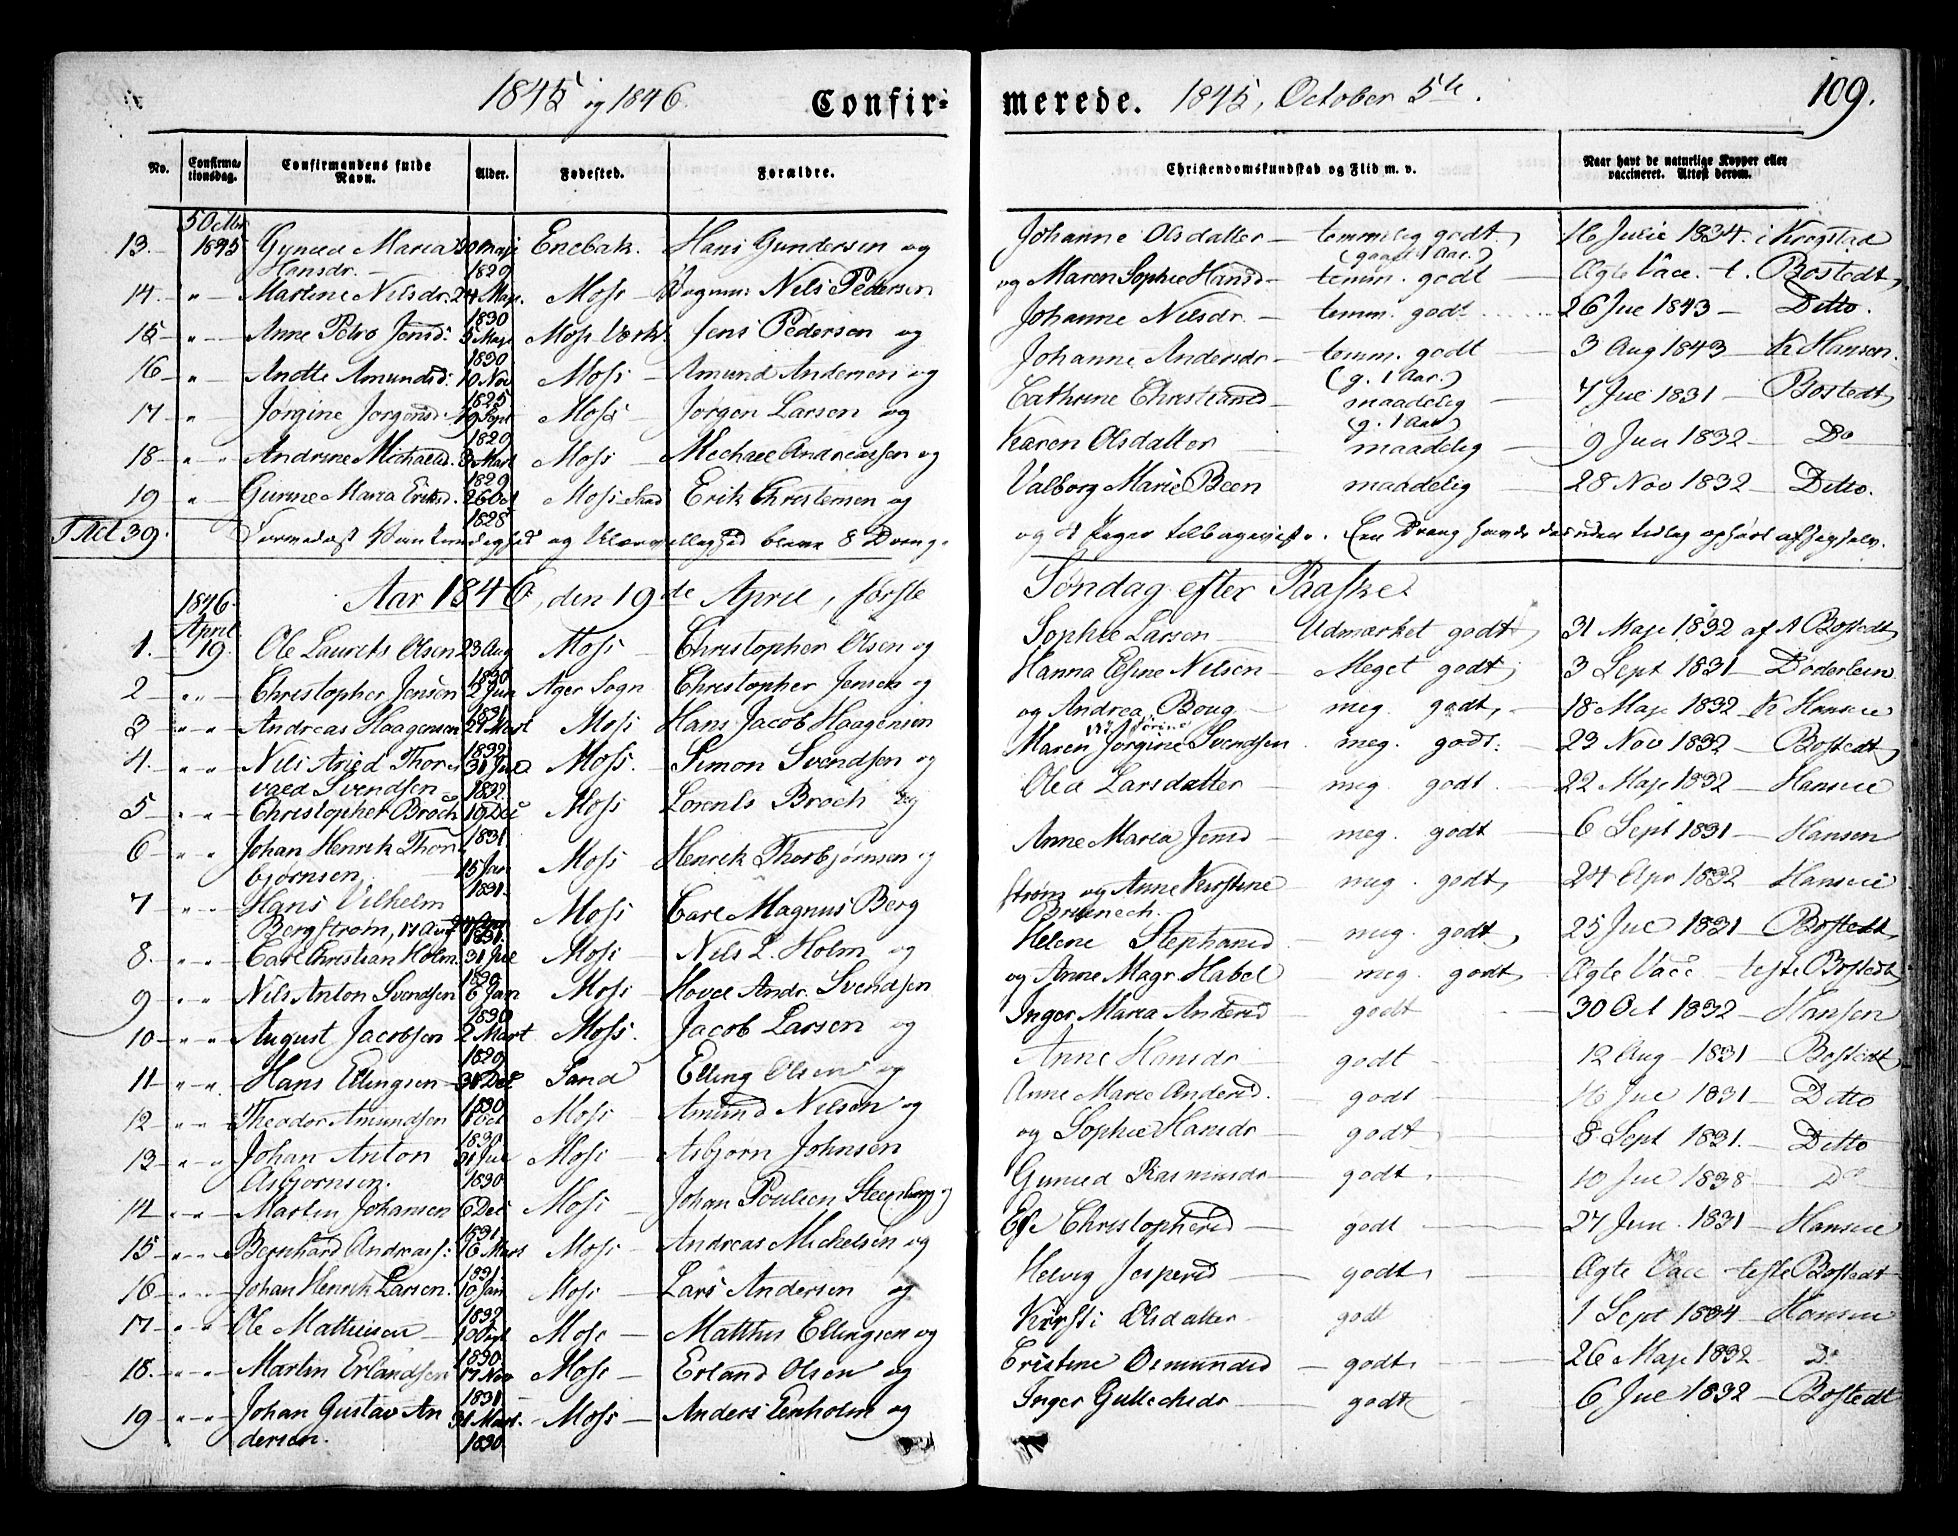 1845 og 1846. Confir- merede. 1845, October 5te. 109.
No. Confirma-tionsdag. Confirmandens fulde Navn. Alder. Fødested. Forældre. Christendomskundskab og Flid m. v. Naar havt de naturlige Kopper eller vaccineret. Attest derom.
5 Octbr
13. 1845 Maria 20 Maji Enebak. Hans Gundersen og Johanne Olsdatter temmelig godt 16 Julii 1834. i Krogstad
Hansdr. 1829 (gaaet 1 Aar.)
14. " Martine Nilsdr. 24 Maji. Moss Nils Pedersen og Maren Sophie Hansd temm. godt Ægte Vacc. t. Bostedt
1830
15 " Anne Petro Jensd: 5 Maji Moss Værk. Jens Pedersen og Johanne Nilsdr. temm. godt 26 Jul 1843 Ditto.
1830
16 " Amundsd: 10 Nov Moss Amund Andersen og Johanne Andersdr temm. godt 3 Aug 1843 K Hansen.
1825 (g. 1 Aar.)
17 " Jørgine Jørgensd 19 Sept Moss Jørgen Larsen og Cathrine Christiansd maadelig 7 Jul 1831 Bostedt
1829 (g. 1 Aar)
18 " " Andrine Michaelsd. 3 Mart Moss Michael Andreassen og Karen Olsdatter maadelig 9 Jun 1832 Do
1829
19 " Gunne Maria Eriksd. 26 Oct Moss Sand Erik Christensen og Valborg Marie Been maadelig 28 Nov 1832 Ditto.
1828
39. Formedelst og bleve 8 Dreng- og tilbageviiste. En Dreng havde desuden
Aar 1846, den 19de April, første Søndag efter Paaske
1846
April
1. 19. Ole Laurits Olsen 23 Aug Moss Christopher Olsen og Sophie Larsen Udmærket godt 31 Maji 1832 af A Bostedt
1830
2 " " Christopher Jensen 2 Jun Ager Sogn Christopher Jensen og Hanna Elsine Nilsen Meget godt 3 Sept 1831 Döderlein
1831
3 " " Andreas Haagensen 27 Mart Moss Hans Jacob Haagensen og Andrea Boug meg. godt, 18 Maji 1832 K Hansen
1832
4. " " Nils Thor- 31 Jul Moss. Simon Svendsen og Maren Jørgine Svendsen meg. godt. 23 Nov 1832 Bostedt
vald Svendsen 1832.
5 " " Christopher Broch 19 Dec Moss Lorents Broch og Olea Larsdatter meg. godt. 22 Maji 1832 Hansen
1831
6 " " Johan Henrik Thor- 15 Jan Moss Henrik Thorbjørnsen og Anne Maria Jensd meg. godt 6 Sept 1831 Hansen
bjørnsen 1831.
7 " " Hans Vilhelm Moss Carl Magnus Berg strøm og Anne Kirstine meg. godt 24 Apr 1832 Hansen
Bergstrøm, 17 Aug 1831.
8. " " Carl Christian Holm. 31 Jul Moss Nils L. Holm og Helene Stephansd meg. godt 25 Jul 1831 Bostedt
1830
9 " " Nils Anton Svendsen 6 Jan Moss Hovel Andr. Svendsen og Anne Magr. Habel meg. godt Ægte Vacc teste Bostedt
1830
10 " " August Jacobsen 2 Mart Moss. Jacob Larsen og Inger Maria Andersd godt 30 Oct 1832 Hansen
1829
11 " " Hans Ellingsen 31 Dec Sand Elling Olsen og Anne Hansdr godt 12 Aug 1831 Bostedt
1830
12 " " Theodor Amundsen Oct Moss Amund Nilsen og Anne Marie Andersd. godt 16 Jul 1831 Ditto
1830
13 " " Johan Anton 31 Jul Moss Asbjørn Johnsen og Sophie Hansdr godt 8 Sept 1831. Ditto
Asbjørnsen. 1830
14 " " Martin Johansen 6 Dec Moss Johan Poulsen Steenberg og Gunild Rasmusdr godt 10 Jul 1838 Do
1831
15 " " Bernhard Andreass: 16 Mars Moss Andreas Mickelsen og Else Christophersd godt 27 Jun 1831 Hansen
1831
16 " " Johan Henrik Larsen. 10 Jan Moss Lars Andersen og Helvig Jespersd godt Ægte Vacc teste Bostedt
1832
17 " " Ole Mathiesen Moss Matthis Ellingsen og Kirsti Olsdatter godt 1 Sept 1834 Hansen
1830
18. " " Martin Erlandsen 17 Nov Moss Erland Olsen og Cristine Osmundsd godt 26 Maji 1832 Do
1831
19 " " Johan Gustav An 31 Mart. Moss Anders Eenholm og Inger Gullichsdr godt 6 Jul 1832 Bostedt
dersen. 1830